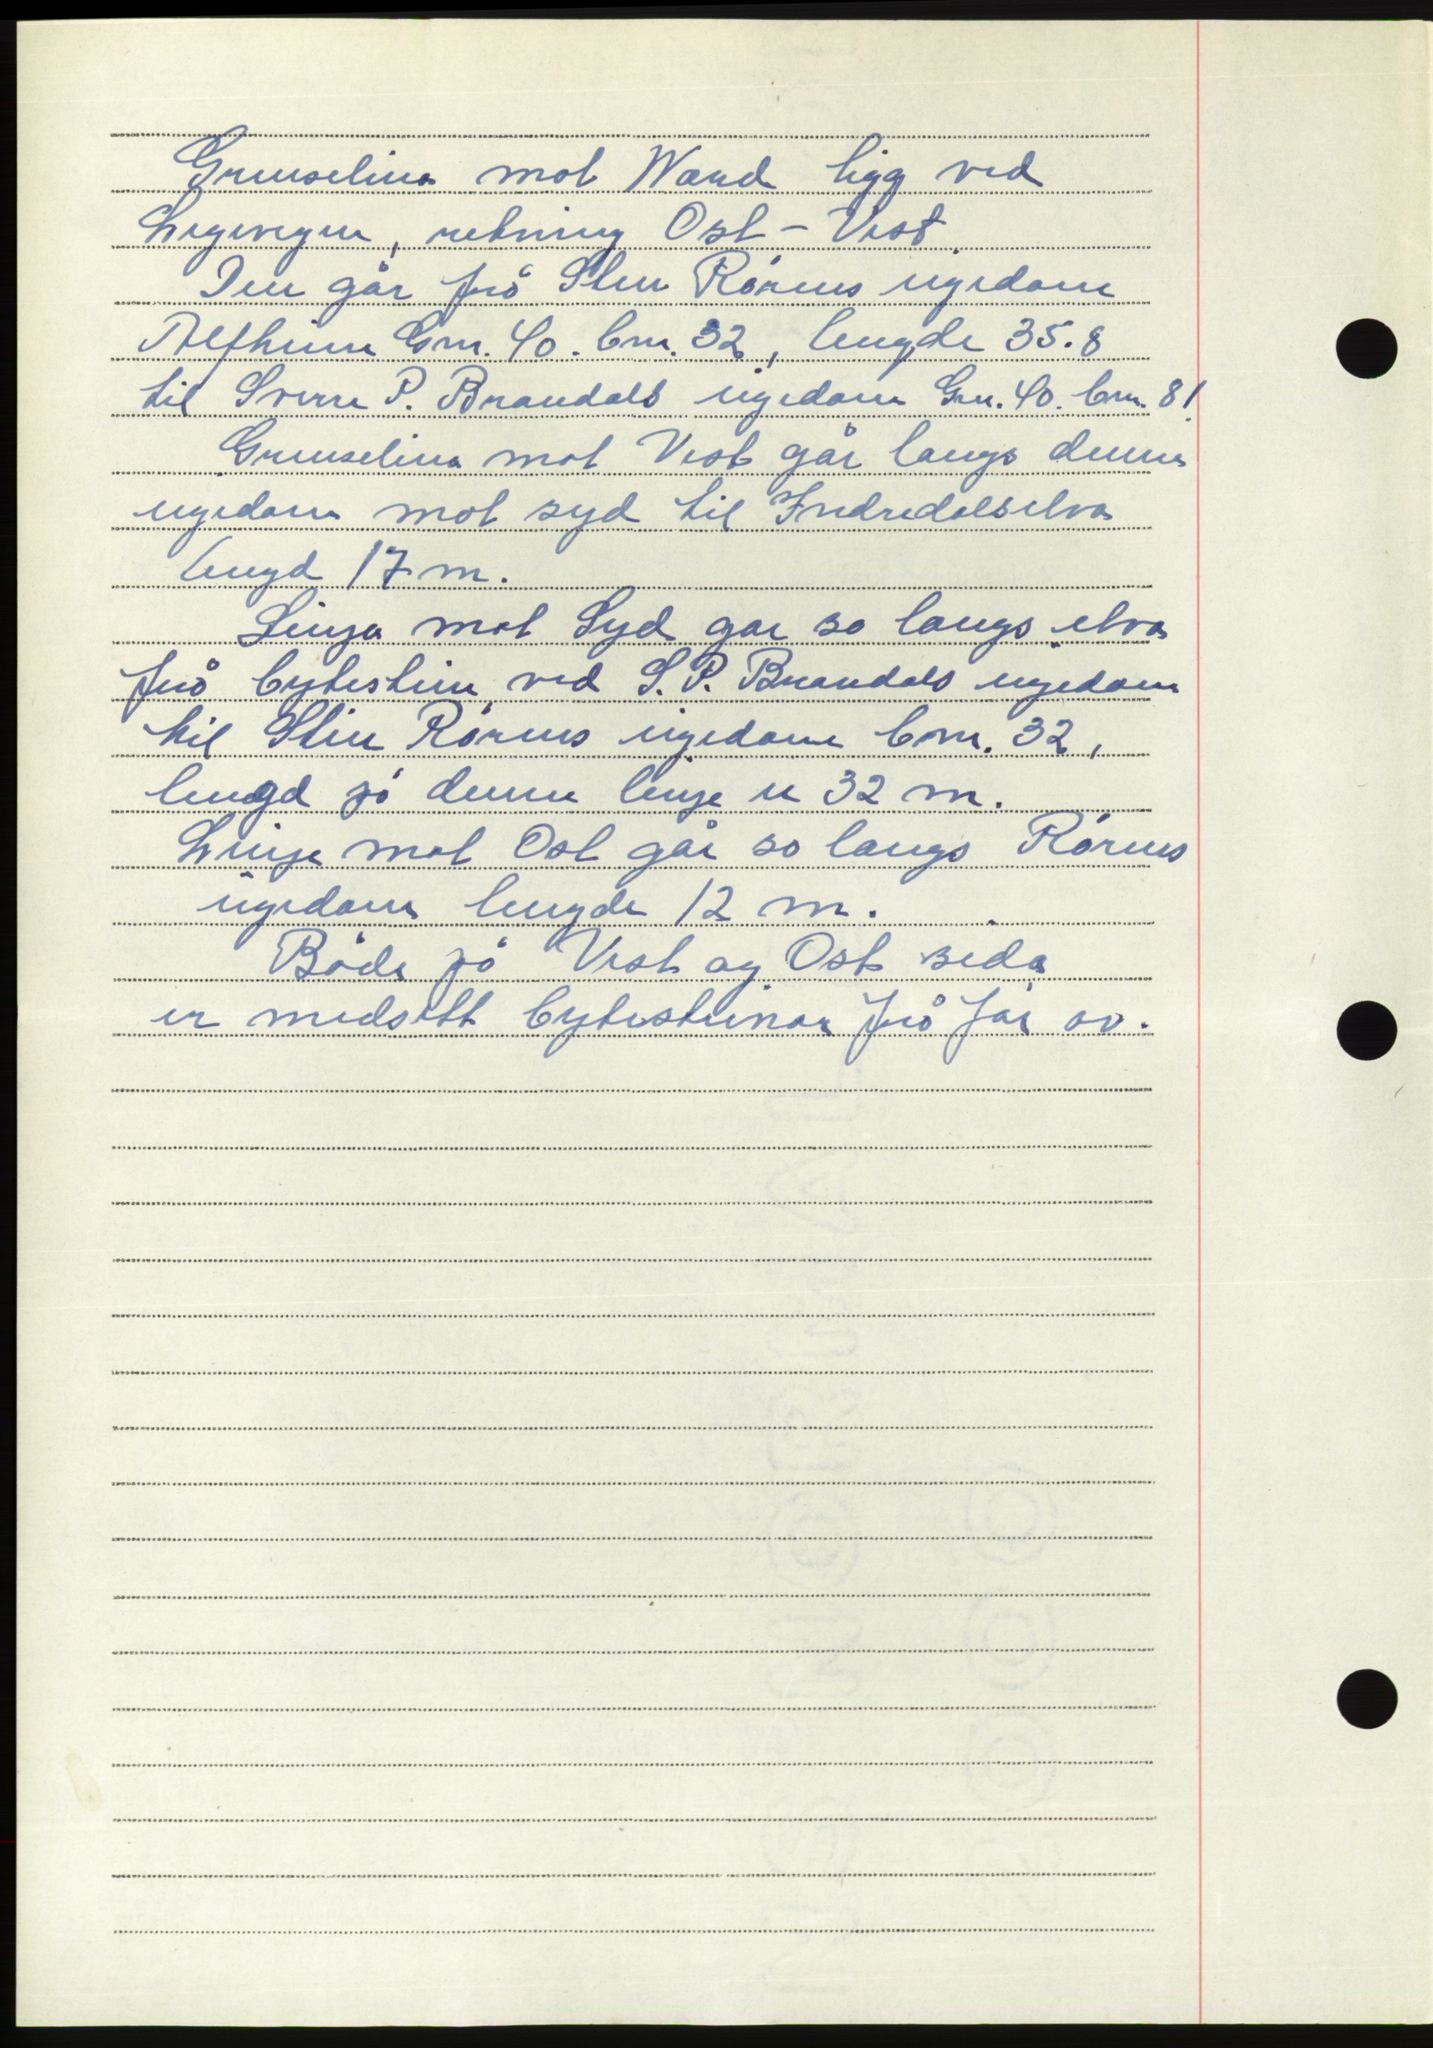 Grenselina mot Nord ligg ved
Legevegen, retning Ost – Vest.
Den går frå Sten Rørens eigedom
Alfheim Gnr. 40. bnr. 32, lengde 35.8
til Sverre P. Brandals eigedom Gnr. 40. bnr. 81.
Grenselina mot Vest går langs denne
eigedom mot syd til Indredalselva
lengd 17 m.
Linja mot Syd gar so langs elva
frå bytestein ved S. P. Brandals eigedom
til Stein Rørens eigedom bnr. 32,
lengd på denne linje er 32 m.
Linje mot Ost går so langs Rørens
eigedom lengde 12 m.
Både på Vest og Ost sida
er medsett bytesteinar frå før av.